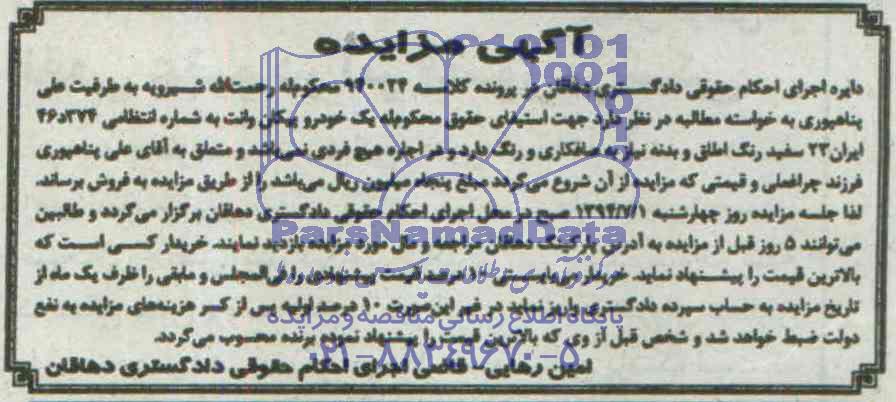 آگهی مزایده
دایره اجرای احکام حقوقی دادگستری دهاقان در پرونده کلاسه ۹۴۰۰۲۴ محکوم‌له رحمت‌الله شیرویه به طرفیت علی
پناهپوری به خواسته مطالبه در نظر دارد جهت استیفای حقوق محکوم‌له یک خودرو پیکان وانت به شماره انتظامی ۳۷۴د۴۶
ایران۲۳ سفید رنگ اطلق و بدنه نیاز به صافکاری و رنگ دارد و در اجاره هیچ فردی نمی‌باشد و متعلق به آقای علی پناهپوری
فرزند چراغعلی و قیمتی که مزایده از آن شروع می‌گردد مبلغ پنجاه میلیون ریال می‌باشد را از طریق مزایده به فروش برساند.
لذا جلسه مزایده روز چهارشنبه ۱۳۹۴/۷/۱ صبح در محل اجرای احکام حقوقی دادگستری دهاقان برگزار می‌گردد و طالبین
می‌توانند ۵ روز قبل از مزایده به آدرس پارکینگ دهاقان مراجعه و مال مورد مزایده بازدید نمایند. خریدار کسی است که
بالاترین قیمت را پیشنهاد نماید. خریدار می‌بایستی ۱۰ درصد قیمت پیشنهادی را فی‌المجلس و مابقی را ظرف یک ماه از
تاریخ مزایده به حساب سپرده دادگستری واریز نماید در غیر این صورت ۱۰ درصد اولیه پس از کسر هزینه‌های مزایده به نفع
دولت ضبط خواهد شد و شخص قبل از وی که بالاترین قیمت را پیشنهاد نموده برنده محسوب می‌گردد.
امین رهایی - قاضی اجرای احکام حقوقی دادگستری دهاقان
ParsNamadData
پایگاه اطلاع رسانی مناقصه و مزایده
۰۲۱-۸۸۳۴۹۶۷۰-۵